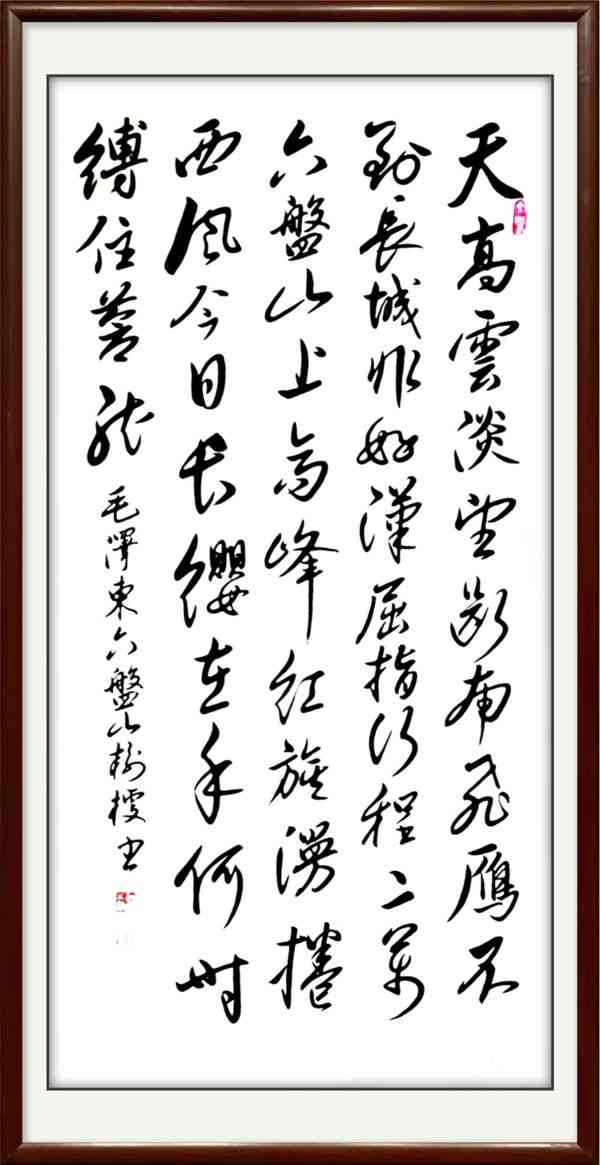 天高雲淡望斷南飛鴈不
到長城非好漢屈指行程二萬
六盤山上高峰紅旗漫捲
西風今日長纓在手何時
縛住蒼龍
毛澤東六盤山樹書